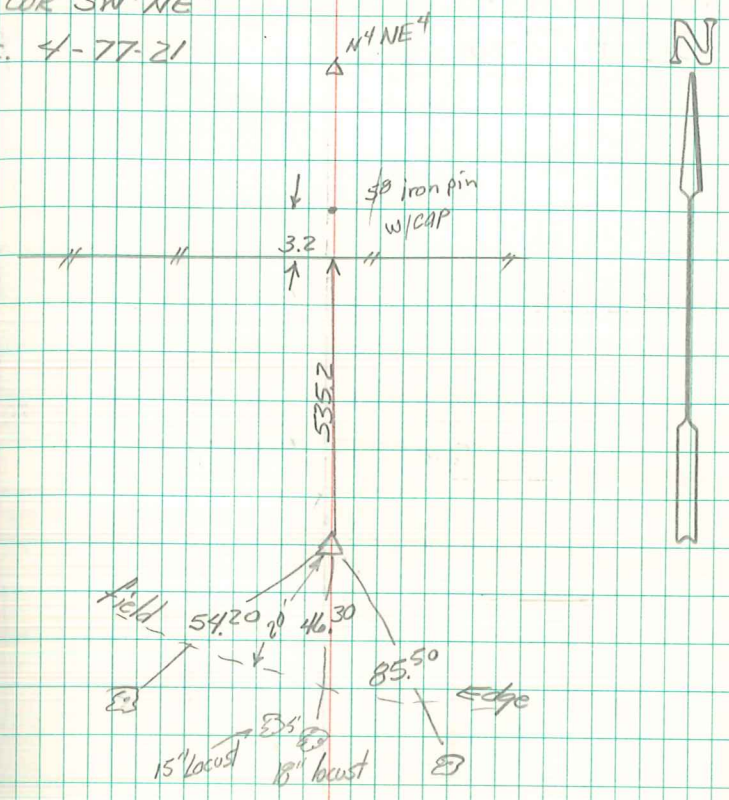 COR SW NE
. 4-77-21
N
N4 NE4
5/8 iron pin
w/cap
3.2
535.2
field
54.20
20'
46.30
85.50
Edge
5'
15" Locust
18" locust